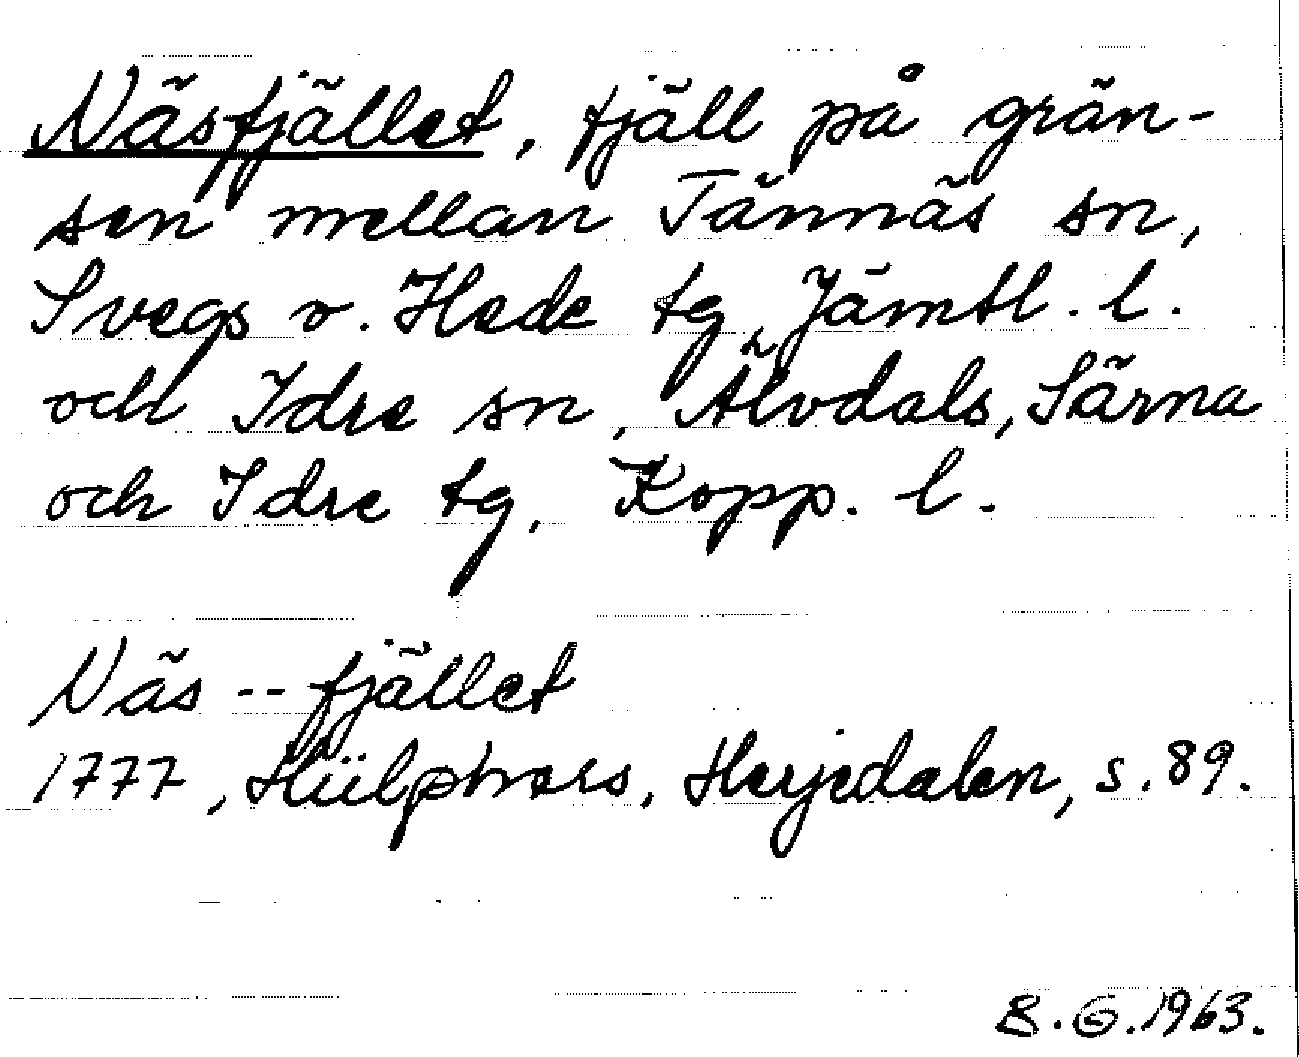 Näsfjället, fjäll på grän-
sen mellan Tännäs sn,
Svegs o. Hede tg, Jämtl. l.
och Idre sn, Älvdals, Särna
och Idre tg, Kopp. l.
Näs -- fjället
1777, Hülphers, Herjedalen, s. 89.
8.6.1963.